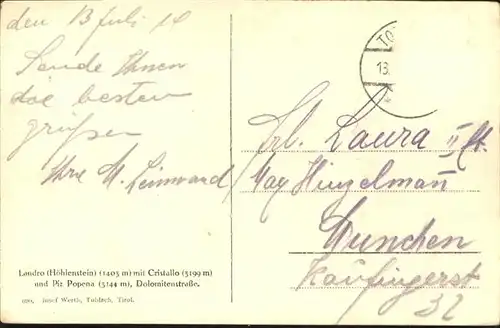 den 13 Juli 10
Sende Ihnen
die besten
grüßen
Ihre M. Leinward
TO
13.
Frl. Laura
Max Hinzelman
Munchen
Kaufingerst
32
Landro (Höhlenstein) (1403 m) mit Cristallo (3199 m)
und Piz Popena (3144 m), Dolomitenstraße.
Josef Werth, Toblach, Tirol.